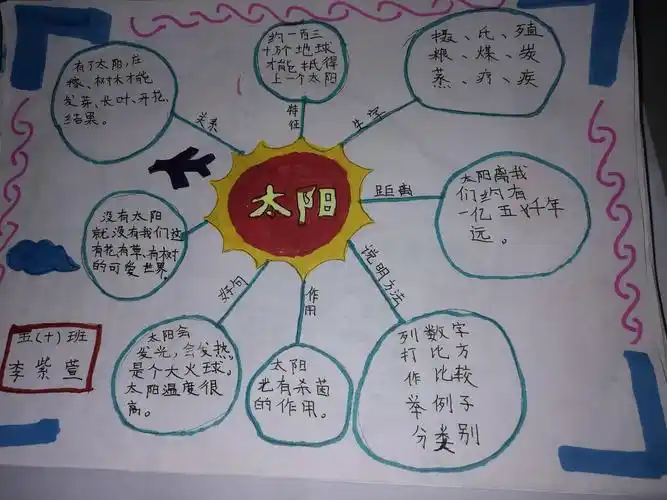 太阳
关系
有了太阳,庄
稼、树木才能
发芽、长叶、开花、
结果。
特征
约一百三
十万个地球
才能抵得
上一个太阳
生字
摄、氏、殖
粮、煤、炭
蒸、疗、疾
距离
太阳离我
们约有
远。
说明方法
列数字
打比方
作比较
举例子
分类别
作用
太阳
光有杀菌
的作用。
好句
太阳会
发光,会发热,
是个大火球。
太阳温度很
高。
没有太阳
就没有我们这
有花,有草,有树
的可爱世界
五(十)班
李紫萱